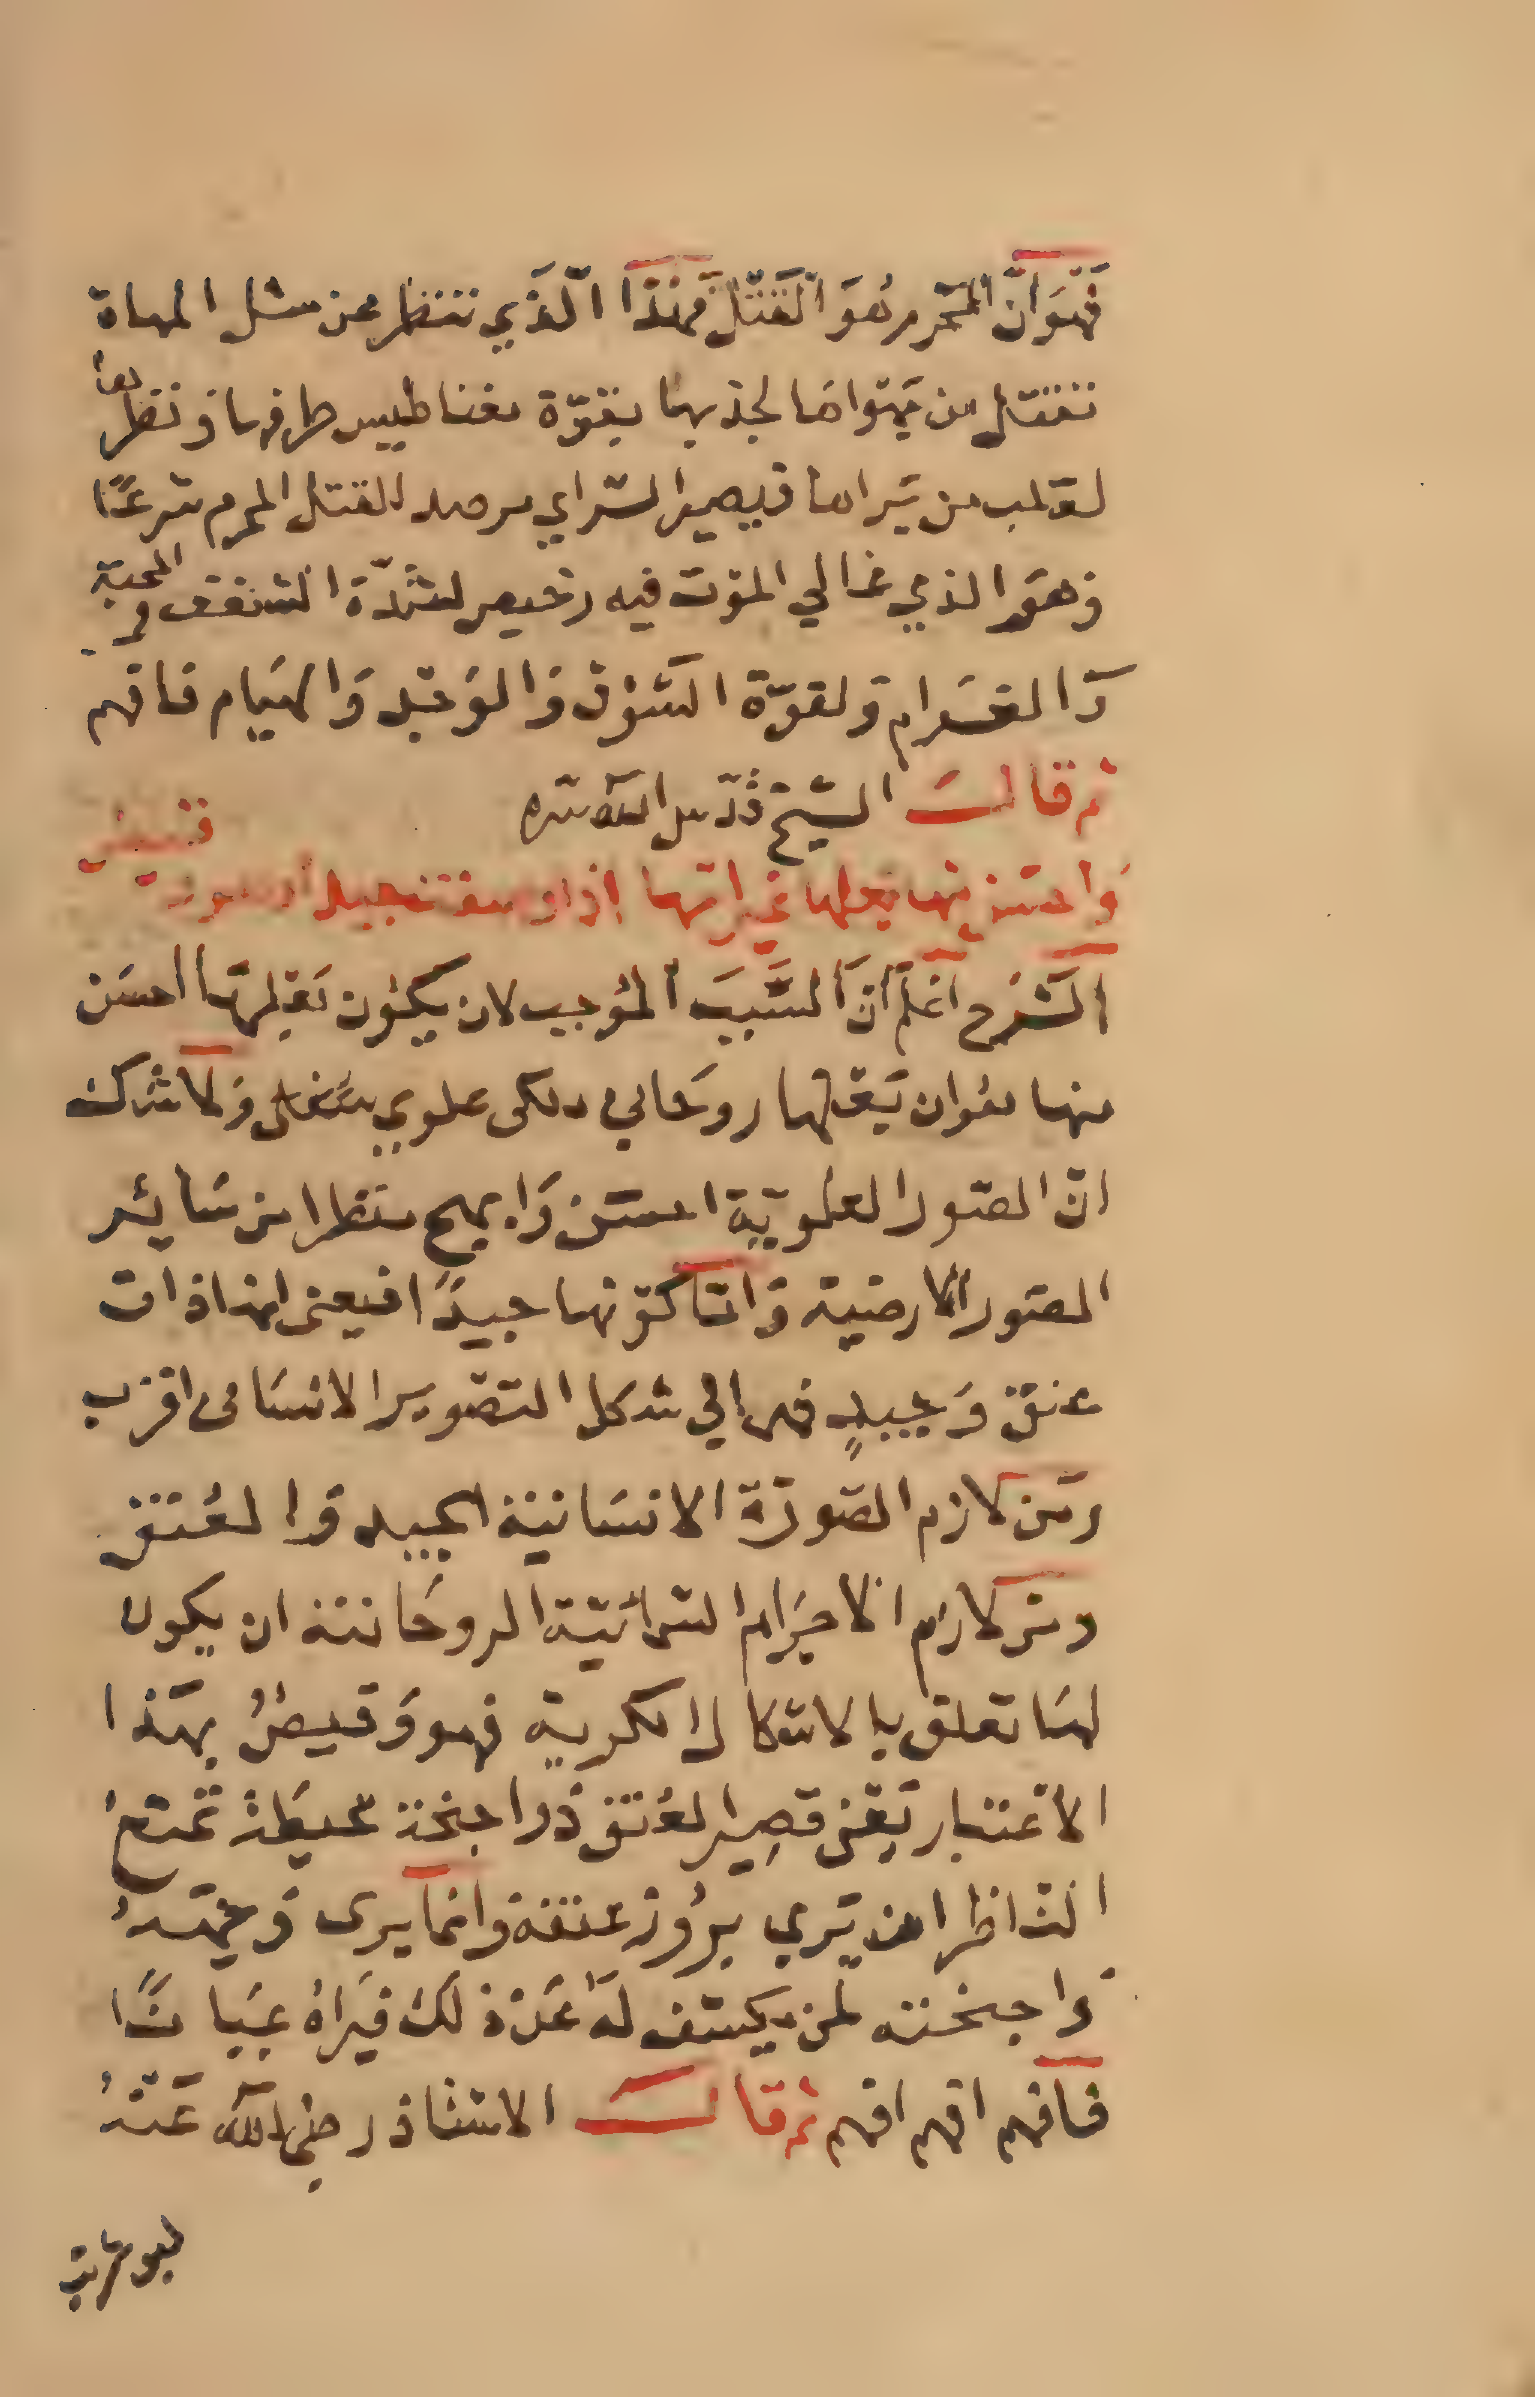 فَهُوَ انَّ المحرم هُوَ القَتْلُ فهَذَا الَّذي تنظر عن مثل المهاة
تقتل من يَهوَاهَا لجذبها بقوّة مغناطيس طرفها و نظرها
لقلب من يَراها فيصير الرّاي مرصد للقتل المحرم شرعًا
وَهوَ الذي غالي الموت فيه رخيص لشدّة الشغف والمحبة
وَالغَرام وَلقوّة الشَّوْق وَالوَجْد وَالهيَام فافهم
ثم قالَ الشيخ قدّس الله سّره
وَاحسَن منها بعلها غير انها اذا وصفت جيد
الشَّرح اعْلم انَّ السَّبَبَ المُوجب لان يكون بَعْلهَا احسَن
منها هُوَان بَعْلها روحَاني ملكى علوي وَلا شك
انّ الصّور العلويّة احسَن وَابهج منظرا من سَائر
الصّور الارضية وَامّا كوْنها جيدًا فيعنى انها ذات
عنق وَجيدٍ فهى الي شكل التصْوير الانسَانى اقرب
ومن لازم الصّورَة الانسَانية الجيد وَالعُنق
ومن لازم الاجرَام الروحَانية ان يكون
لهَا تعلق بالاشكال الكرية فهو وَقيصٌ بهَذا
الاعْتبار يَعْنى قصِير العُنق ذوا جنحة محيطَة تمنع
النّاظر ان يَري برُوز عنقه وانما يرى وَجهَهُ
وَاجنحته لمن يكشف لهُ عَن ذلك فيَراهُ عيَانًا
فافهم افهم افهم ثم قالَ الاستاذ رضي الله عَنْهُ